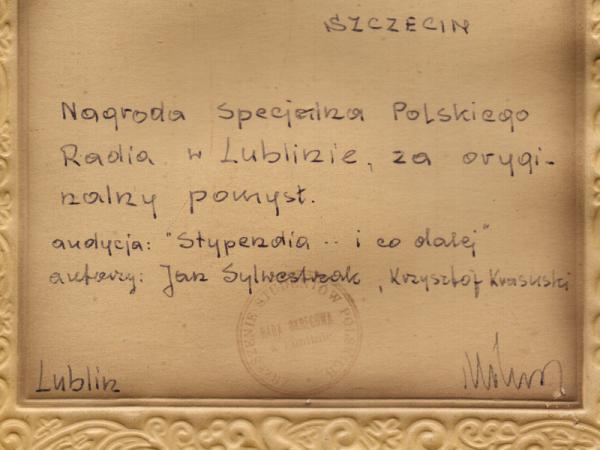 SZCZECIN
Nagroda Specjalna Polskiego
Radia w Lublinie, za orygi-
nalny pomysł.
audycja: "Stypendia .. i co dalej"
autorzy: Jan Sylwestrzak, Krzysztof Krasuski
ZRZESZENIE STUDENTÓW POLSKICH
RADA OKRĘGOWA
Lublin